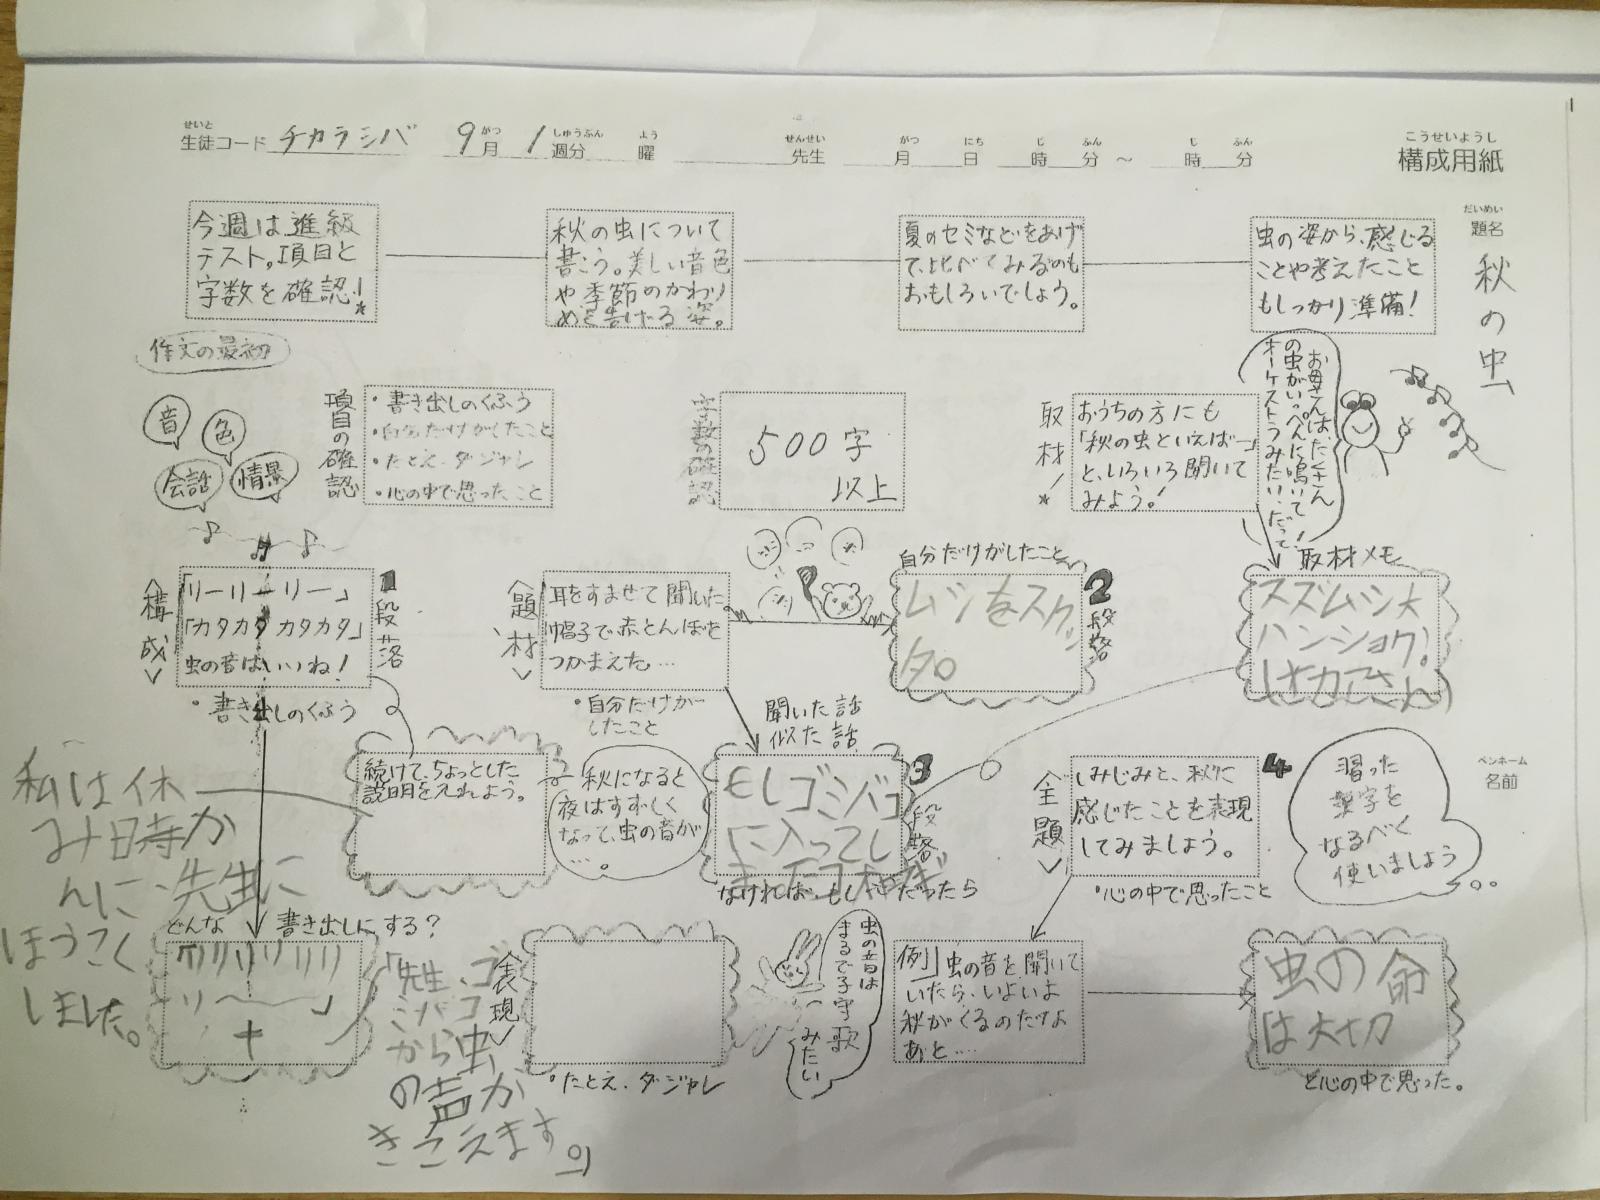 せいと がつ しゅうぶん よう せんせい がつ にち じ ふん じ ふん こうせいようし
生徒コード チカラシバ 9月 1週分 曜 先生 月 日 時 分～ 時 分 構成用紙
だいめい
題名
秋の虫
今週は進級
テスト。項目と
字数を確認!
秋の虫について
書こう。美しい音色
や季節のかわり
めを告げる姿。
夏のセミなどをあげ
て、比べてみるのも
おもしろいでしょう。
虫の姿から、感じる
ことや考えたこと
もしっかり準備!
作文の最初
音
色
会話
情景
項目の確認
・書き出しのくふう
・自分だけがしたこと
・たとえ、ダジャレ
・心の中で思ったこと
字数の確認
500字
以上
取材!
おうちの方にも
「秋の虫といえばー」
と、いろいろ聞いて
みよう!
お母さんは、たくさん
の虫がいっぺんに鳴いて、
オーケストラみたい!だって
<構成>
「リーリーリー」
「カタカタカタカタ」
虫の音はいいね!
1段落
・書き出しのくふう
<題材>
耳をすませて聞いた。
帽子で赤とんぼを
つかまえた…
・自分だけが
したこと
自分だけがしたこと
ムシをスクッ
タ。
2段落
取材メモ
スズムシ大
ハンショク!
続けて、ちょっとした
説明を入れよう。
秋になると
夜はすずしく
なって、虫の音が
…。
聞いた話
似た話
もしゴミバコ
に入ってし
3段落
なければもし だったら
<全題>
しみじみと、秋に
感じたことを表現
してみましょう。
4
・心の中で思ったこと
習った
漢字を
なるべく
使いましょう
ペンネーム
名前
私は休
み時か
んに先生に
ほうこく
しました。
どんな 書き出しにする?
「先生、ゴ
ミバコ
から虫
の声が
きこえます。」
<表現>
・たとえ、ダジャレ
虫の音は
まるで子守歌
みたい
例」虫の音を聞いて
いたら、いよいよ
秋がくるのだなよ
あと‥‥
虫の命
は大切
と心の中で思った。